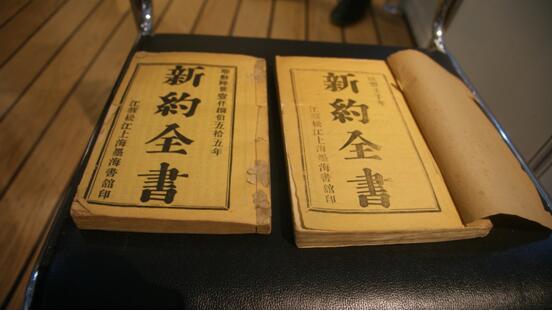 耶穌降世壹仟捌伯五拾五年
新約全書
江蘇松江上海墨海書舘印
新約全書
江蘇松江上海墨海書舘印